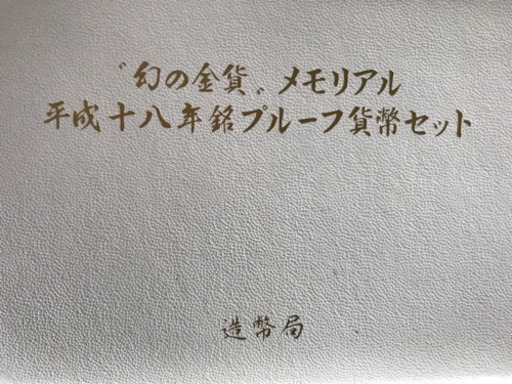 〝幻の金貨〟メモリアル
平成十八年銘プルーフ貨幣セット
造幣局